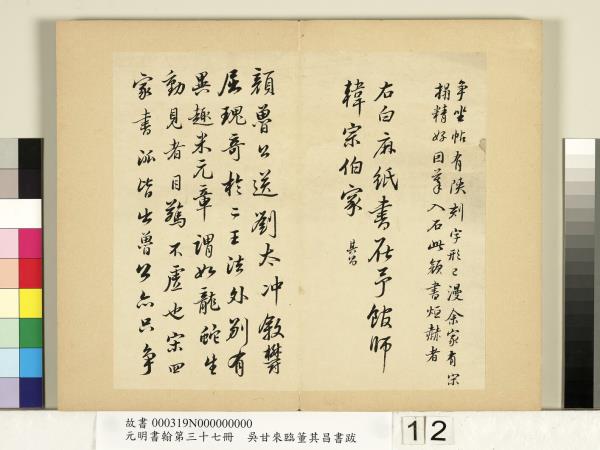 爭坐帖有陝刻字形已漫余家有宋
搨精好因摹入石此顏書烜赫者
右白麻紙書在予館師
韓宗伯家 其昌
顏魯公送劉太冲敘鬱
屈瑰奇於二王法外別有
異趣米元章謂如龍蛇生
動見者目驚不虛也宋四
家書派皆出魯公亦只爭
故書 000319N000000000
元明書翰第三十七冊 吳甘來臨董其昌書跋
12